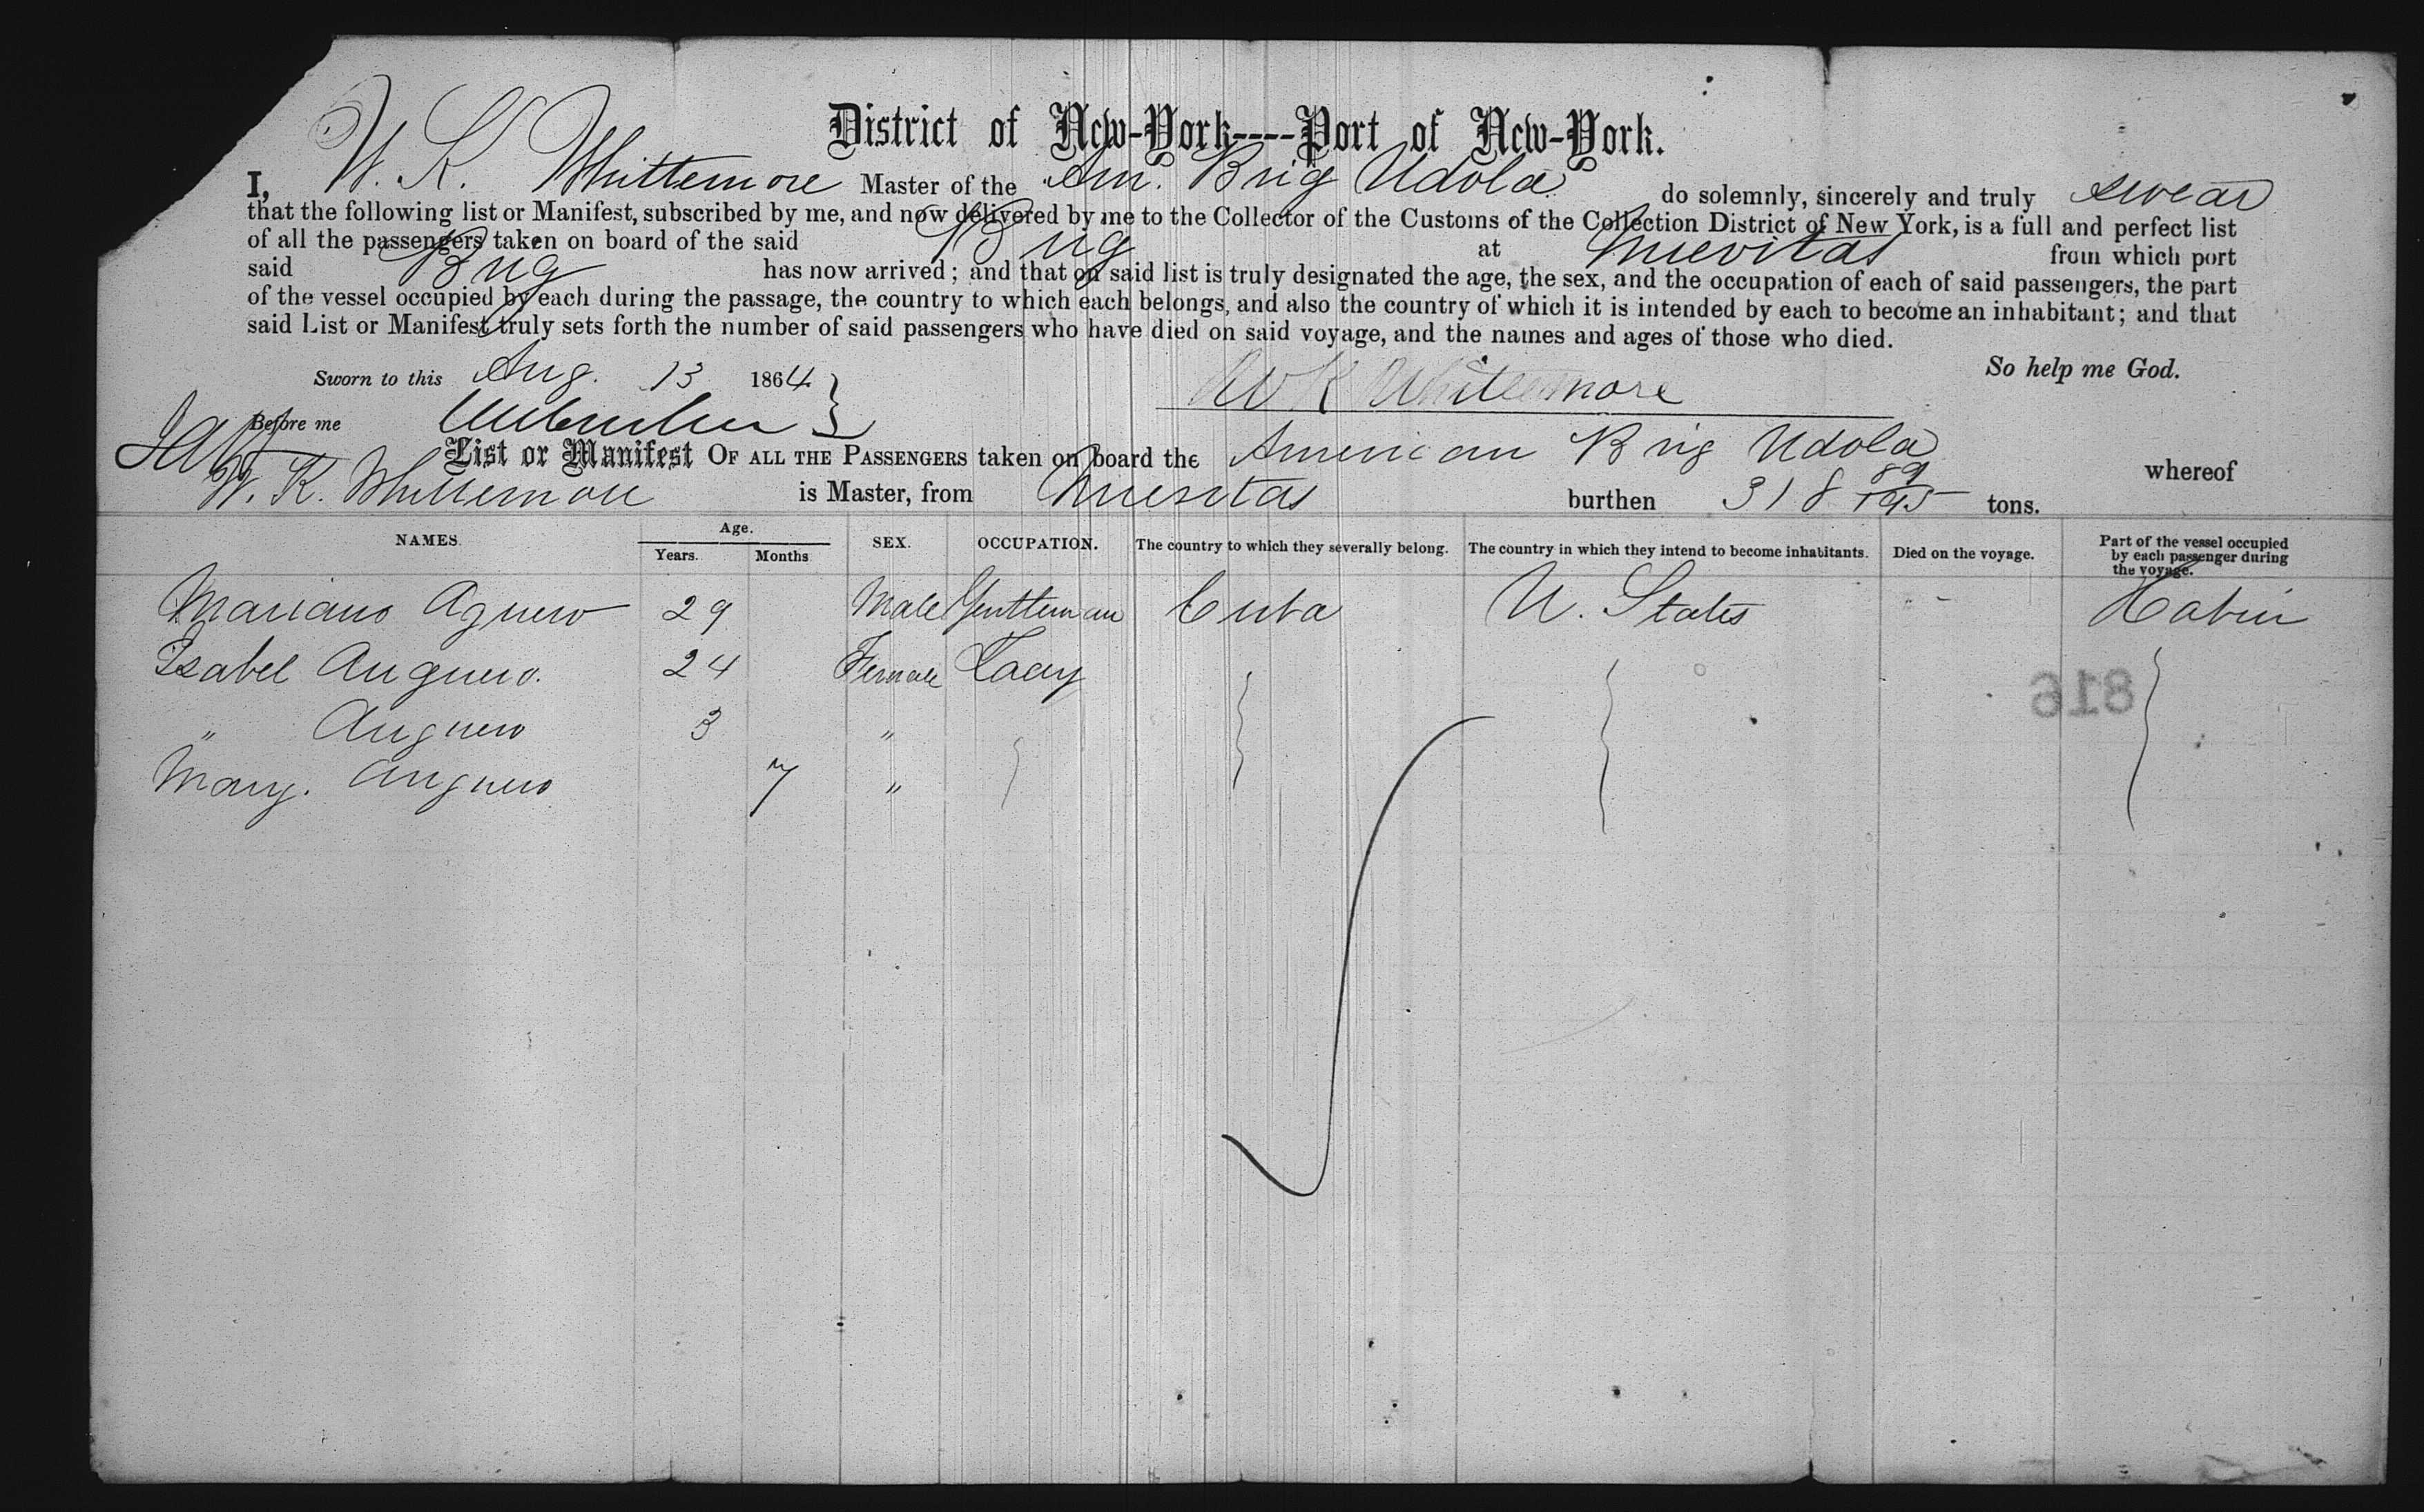 District of New-York----Port of New-York.
I, W. K. Whittemore Master of the Am. Brig Udola do solemnly, sincerely and truly swear
that the following list or Manifest, subscribed by me, and now delivered by me to the Collector of the Customs of the Collection District of New York, is a full and perfect list
of all the passengers taken on board of the said Brig at Nuevitas from which port
said Brig has now arrived; and that on said list is truly designated the age, the sex, and the occupation of each of said passengers, the part
of the vessel occupied by each during the passage, the country to which each belongs, and also the country of which it is intended by each to become an inhabitant; and that
said List or Manifest truly sets forth the number of said passengers who have died on said voyage, and the names and ages of those who died.
So help me God.
Sworn to this Aug. 13 1864
W K Whittemore
Before me
List or Manifest OF ALL THE PASSENGERS taken on board the American Brig Udola whereof
W. K. Whittemore is Master, from Nuevitas burthen 318 89/95 tons.
NAMES. Age. Years. Months SEX. OCCUPATION. The country to which they severally belong. The country in which they intend to become inhabitants. Died on the voyage. Part of the vessel occupied by each passenger during the voyage.
Mariano Aguero 29 Male Gentleman Cuba U. States - Cabin
Isabel Anguero. 24 Female Lady
" Anguero 3 "
Mary. Anguero 7 "
816